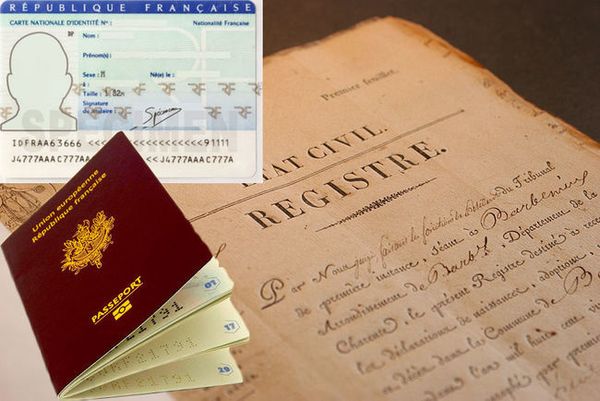 RÉPUBLIQUE FRANÇAISE
CARTE NATIONALE D'IDENTITÉ N°:
Nationalité Française
Nom :
Prénom(s) :
Sexe : M
Né(e) le :
à :
Taille : 1,82m
Signature
du titulaire :
Spécimen
SPECIMEN
IDFRAA63666 <<<<<<<<<<<<<<<<<<<91111
J4777AAAC777A
J4777AAAC777A
Union européenne
République française
PASSEPORT
07
17
29
Premier feuillet.
ETAT CIVIL.
REGISTRE.
Par Nous juge faisant les fonctions de Président du Tribunal
de première instance, séant à Barbezieux
Arrondissement de Barb.x Département de la
Charente, le présent Registre destiné à
les déclarations de naissances, adoptions,
en déclin dans la Commune de
l'an mil huit cent
par premier